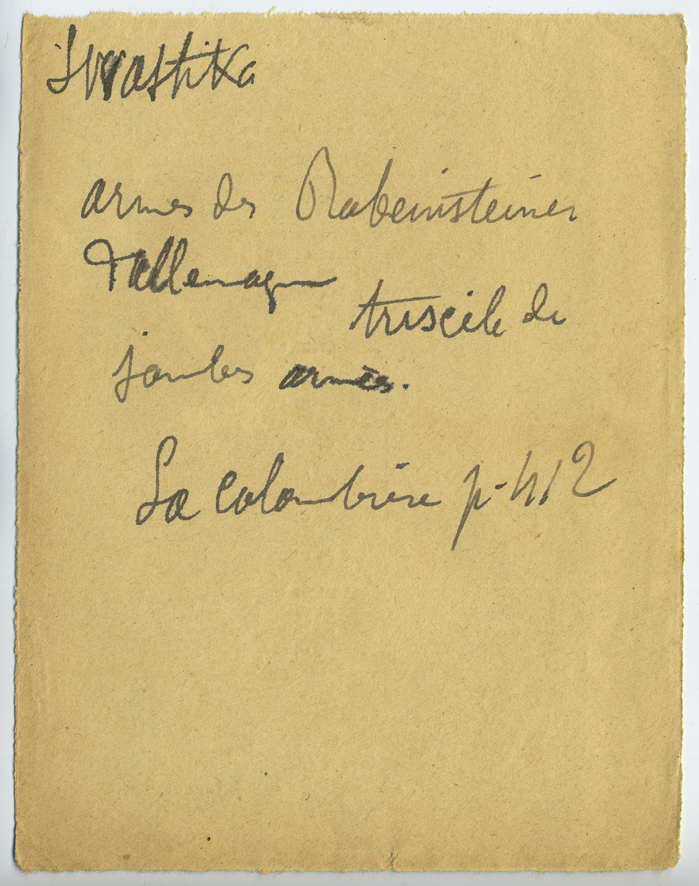 Swastika
armes des Rabeinsteiner
d'allemagne
triscèle de
jambes armées.
La Colombière p. 412